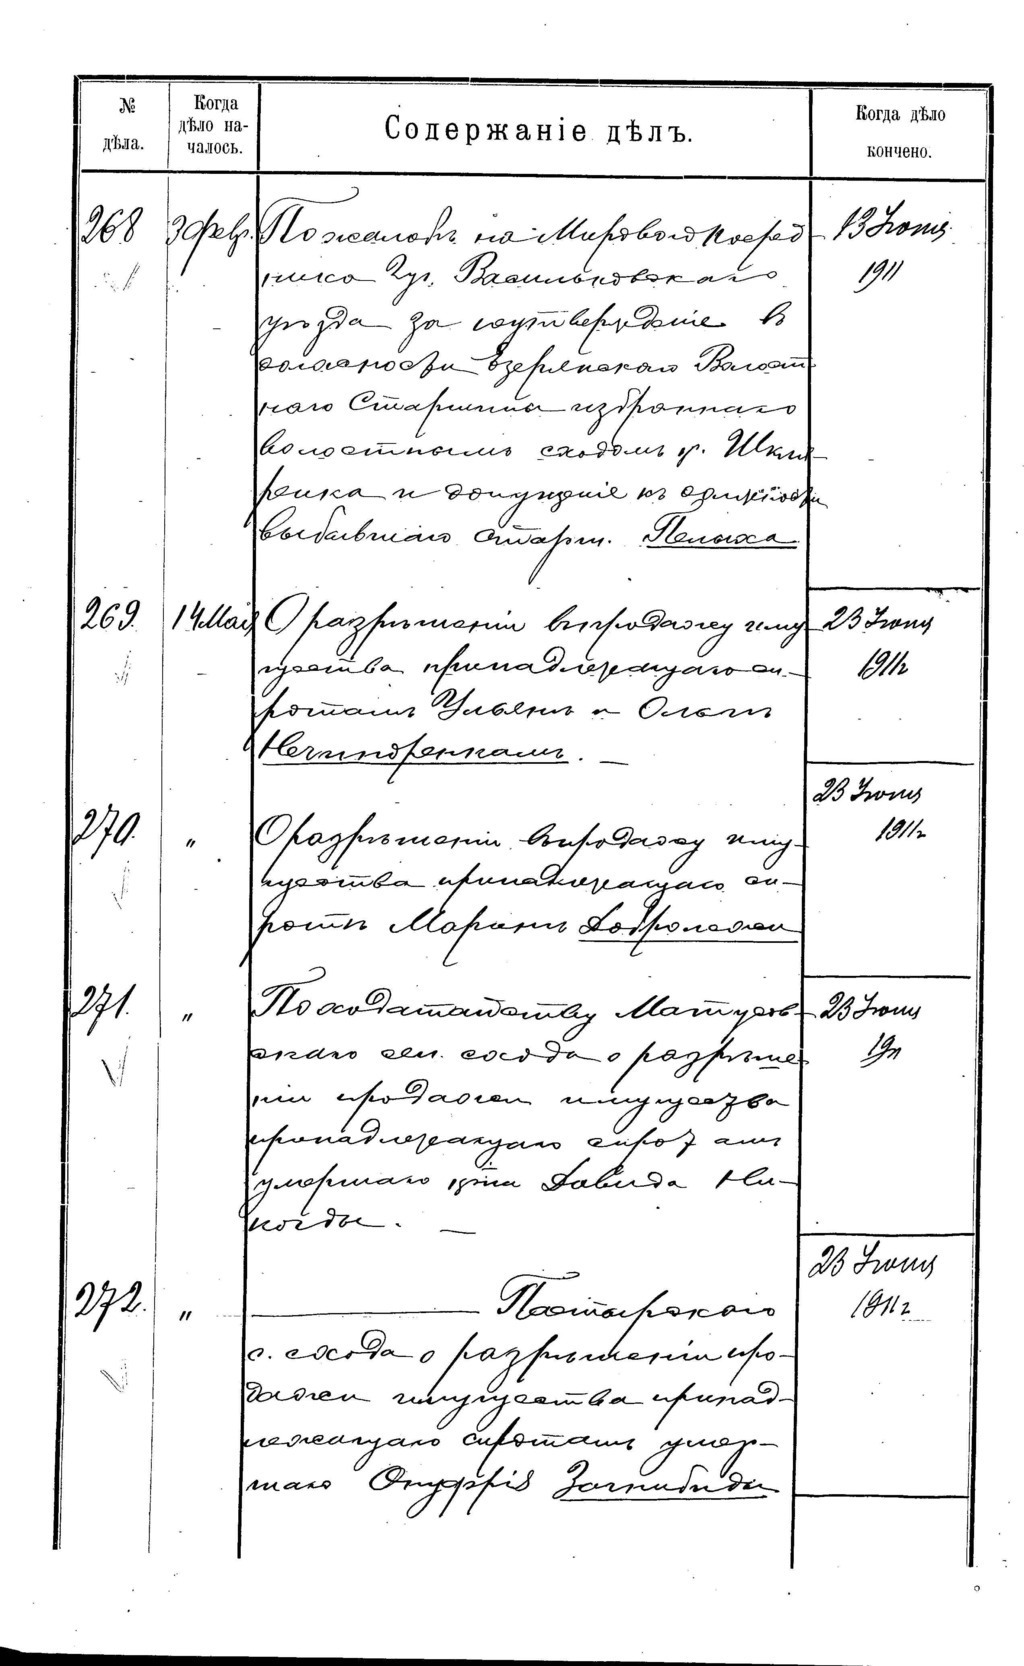 № дѣла.
Когда дѣло на-чалось.
Содержаніе дѣлъ.
Когда дѣло кончено.
268 3 февр. По жалобѣ на Мироваго посред- 13 Іюня
ника 2 уч. Васильковскаго 1911
уѣзда за неутвержденіе въ
должности Езерянскаго Волост
наго Старшины избраннаго
волостнымъ сходомъ кр. Шкля
ренка и допущеніе къ должности
выбывшаго старш. Пелыха
269. 14 Мая О разрѣшеніи въ продажу иму 23 Іюня
щества принадлежащаго си- 1911 г
ротамъ Ульянѣ и Ольгѣ
Нечипоренкамъ. —
23 Іюня
270. „ О разрѣшеніи въ продажу иму- 1911 г
щества принадлежащаго си-
ротѣ Маринѣ Добролежи
271. „ По ходатайству Матусов- 23 Іюня
скаго сел. схода о разрѣше 1911
ніи продажи имущества
принадлежащаго сиротамъ
умершаго кр-на Давида Ни-
когды. —
23 Іюня
272. „ ——— Пастырскаго 1911 г.
с. схода о разрѣшеніи про-
дажи имущества принад-
лежащаго сиротамъ умер-
шаго Онуфрія